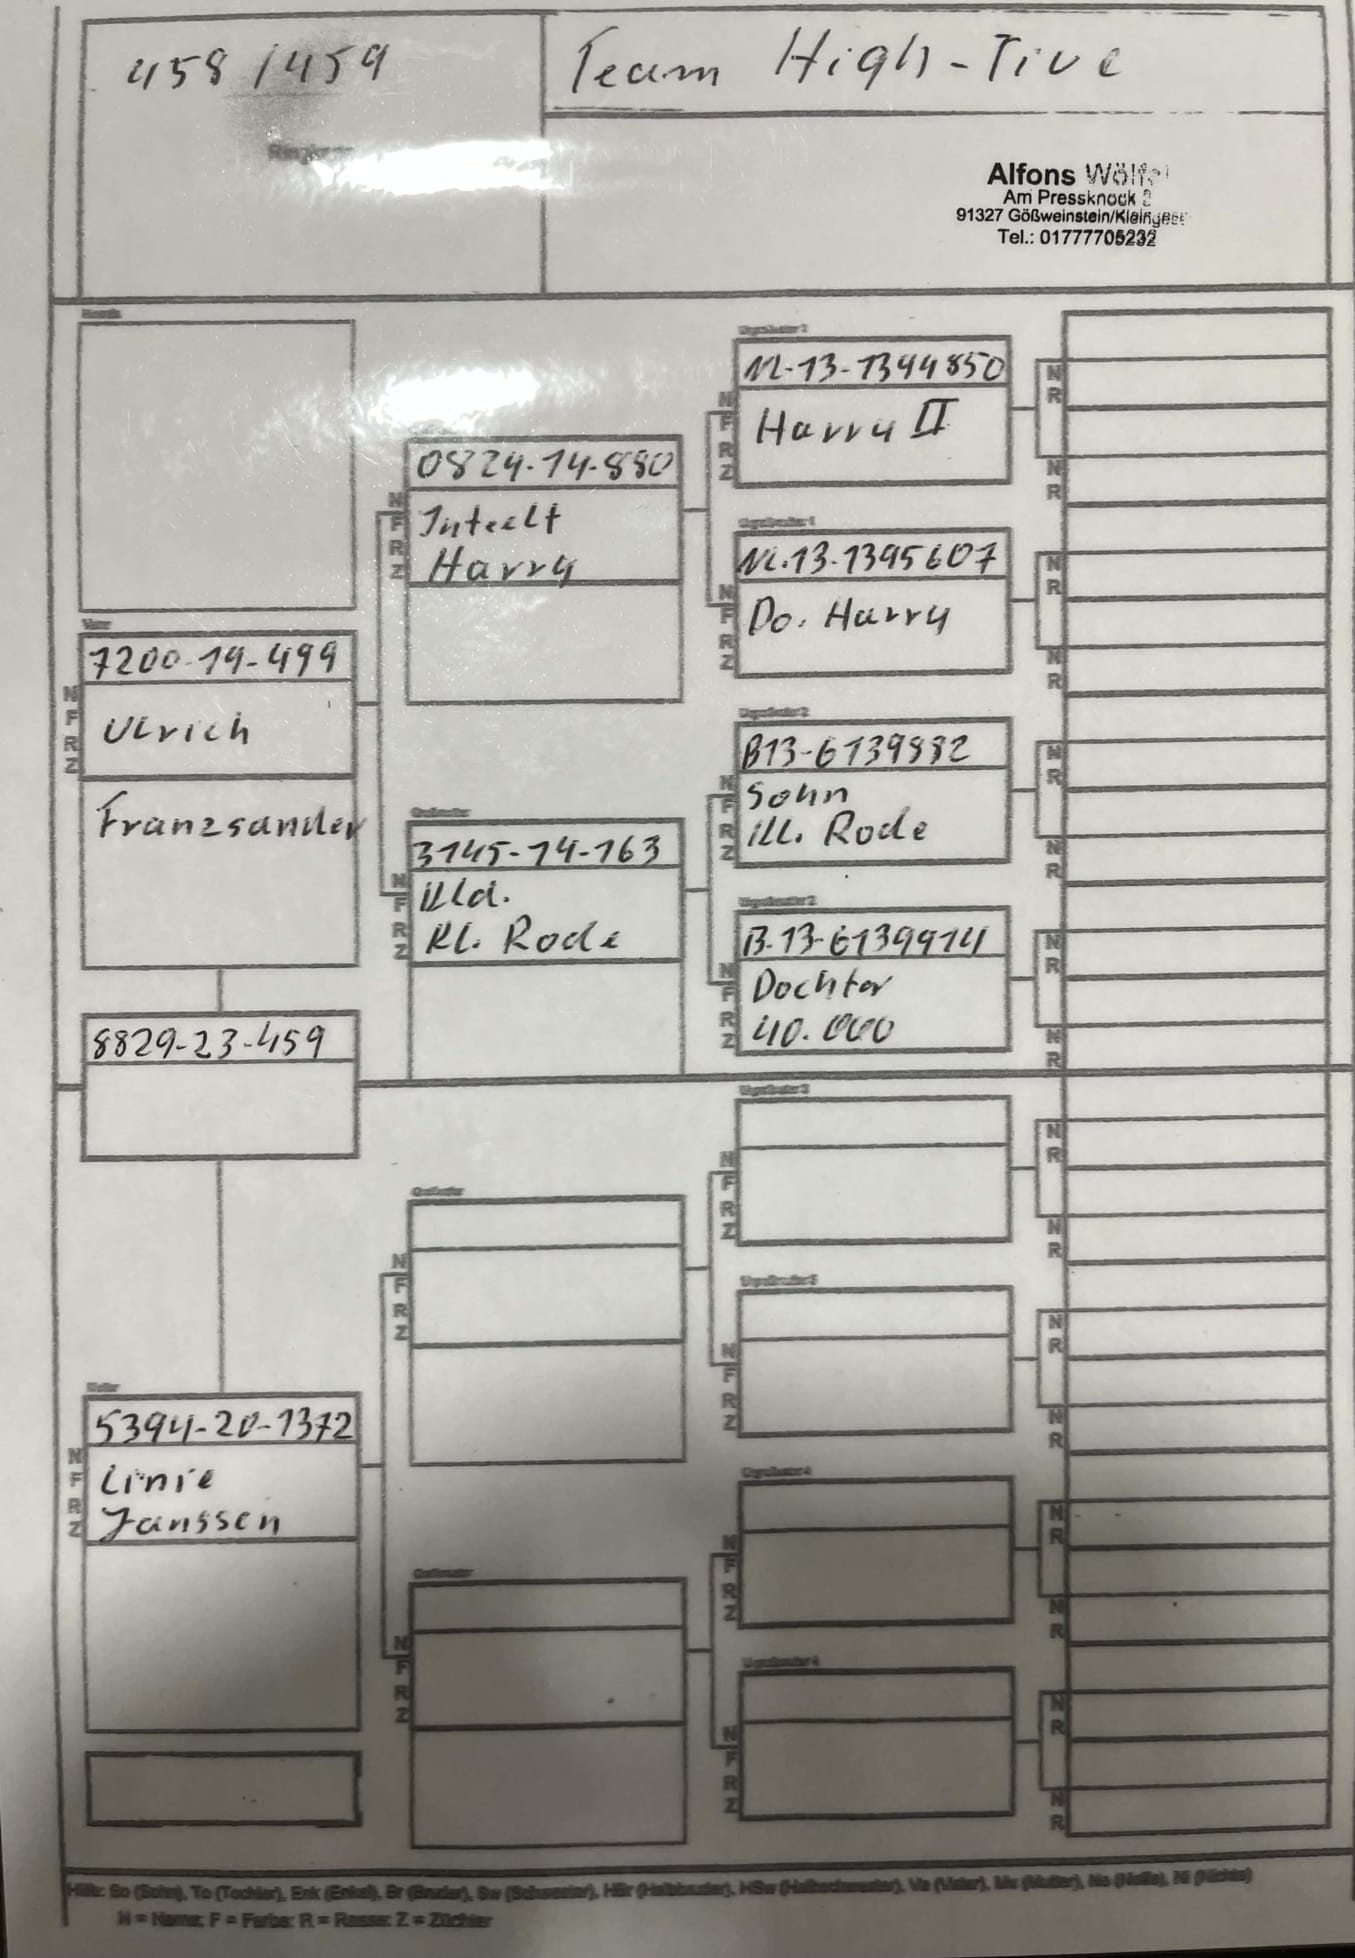 458/459
Team High-Five
Alfons Wölfel
Am Pressknock 2
91327 Gößweinstein/Kleingese
Tel.: 01777705232
Urgroßvater 1
NL-13-1394850
Harry II
0824-14-880
Inteelt
Harry
Urgroßmutter 1
NL.13-1395607
Do. Harry
Vater
7200-19-499
Ulrich
Franzsander
Urgroßvater 2
B13-6139882
Sohn
Kl. Rode
Großmutter
3145-14-163
Kld.
Kl. Rode
Urgroßmutter 2
B-13-6139914
Dochter
40.000
8829-23-459
Urgroßvater 3
Großvater
Urgroßmutter 3
Mutter
5394-20-1372
Linie
Janssen
Urgroßvater 4
Großmutter
Urgroßmutter 4
N
F
R
Z
Hilfe: So (Sohn), To (Tochter), Enk (Enkel), Br (Bruder), Sw (Schwester), HBr (Halbbruder), HSw (Halbschwester), Va (Vater), Mu (Mutter), Ne (Neffe), Ni (Nichte)
N = Name: F = Farbe: R = Rasse: Z = Züchter